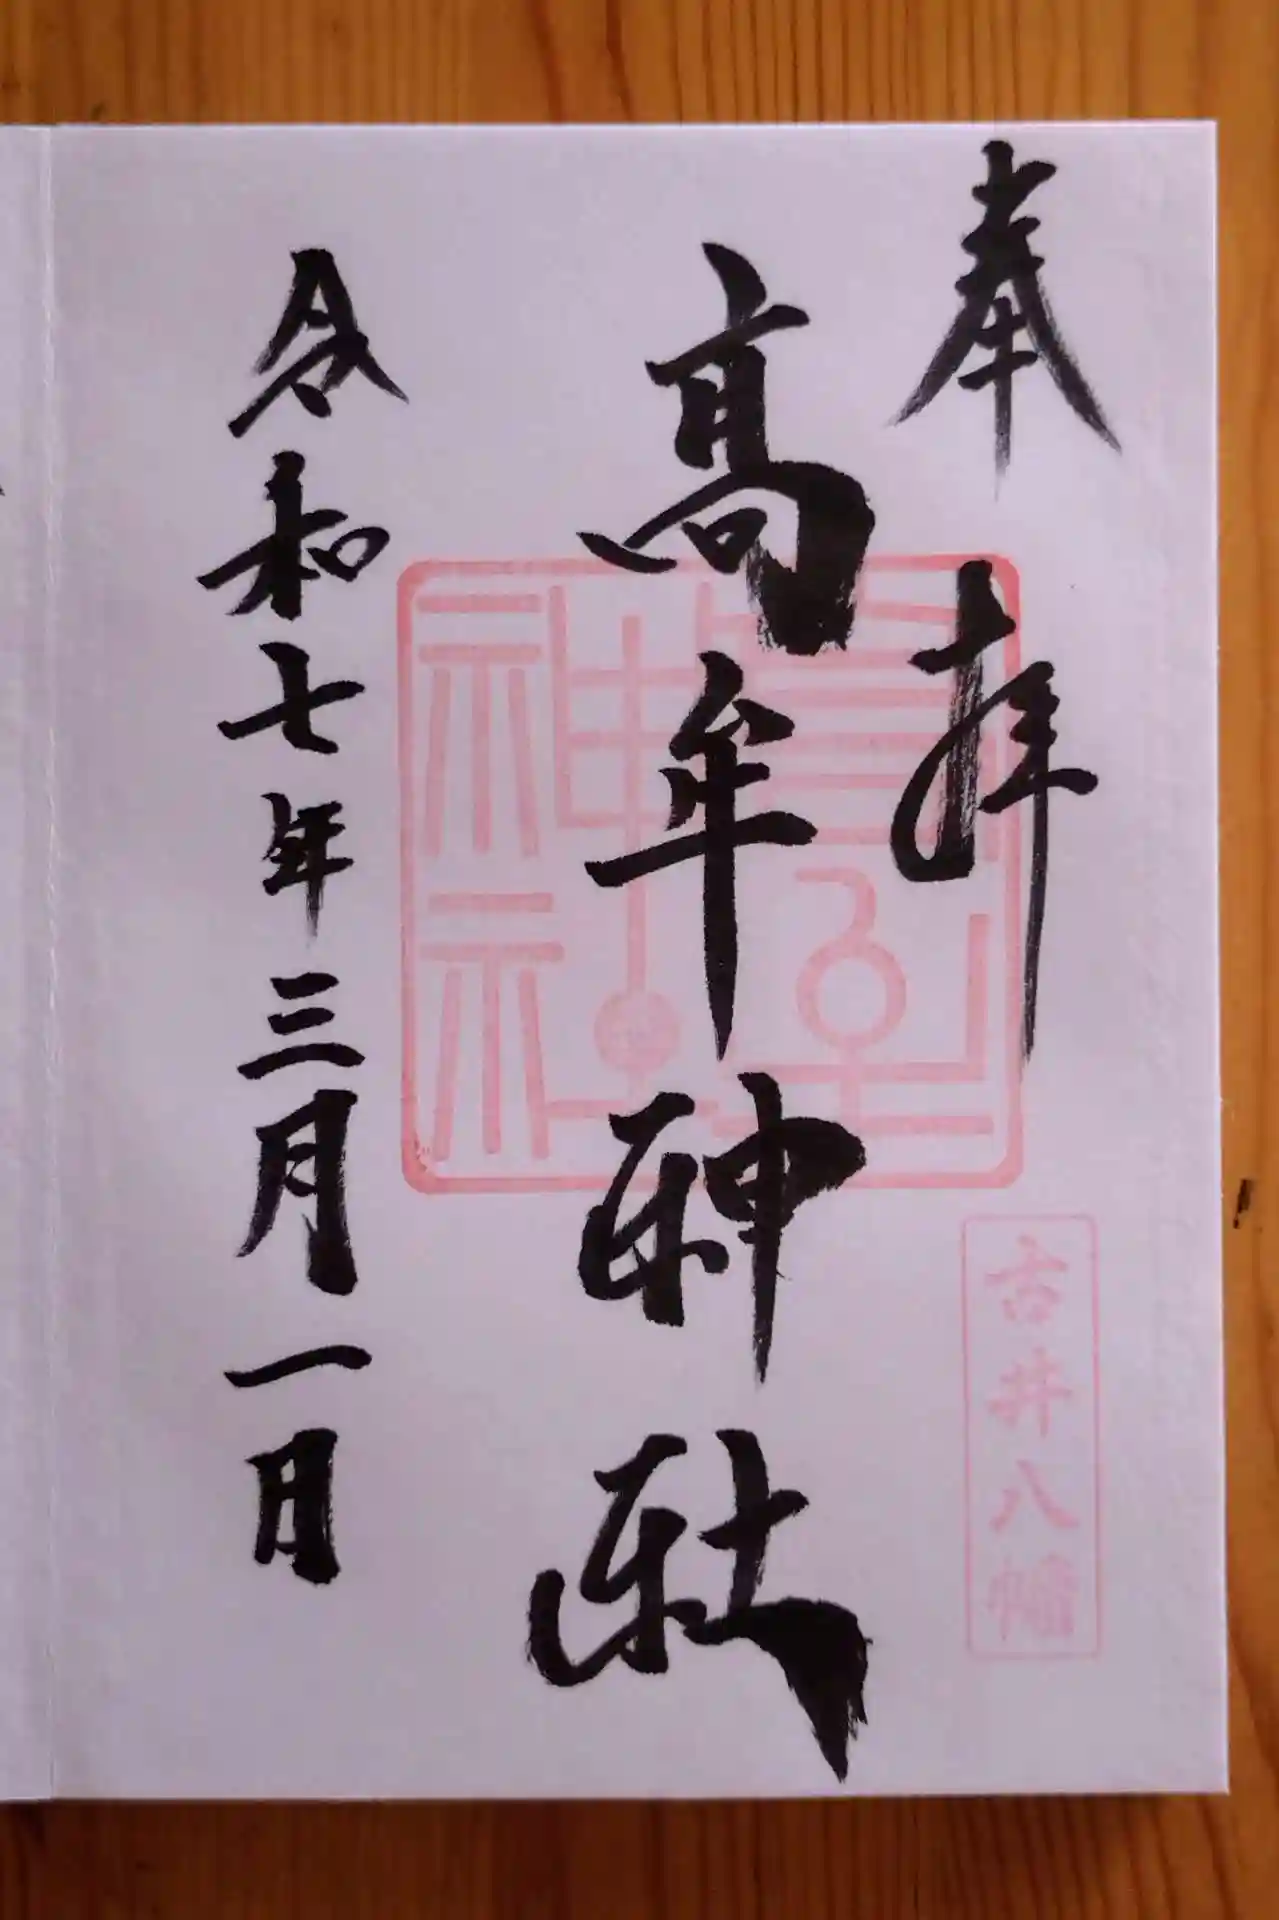 奉拝
古井八幡
高牟神社
高牟神社
令和七年三月一日